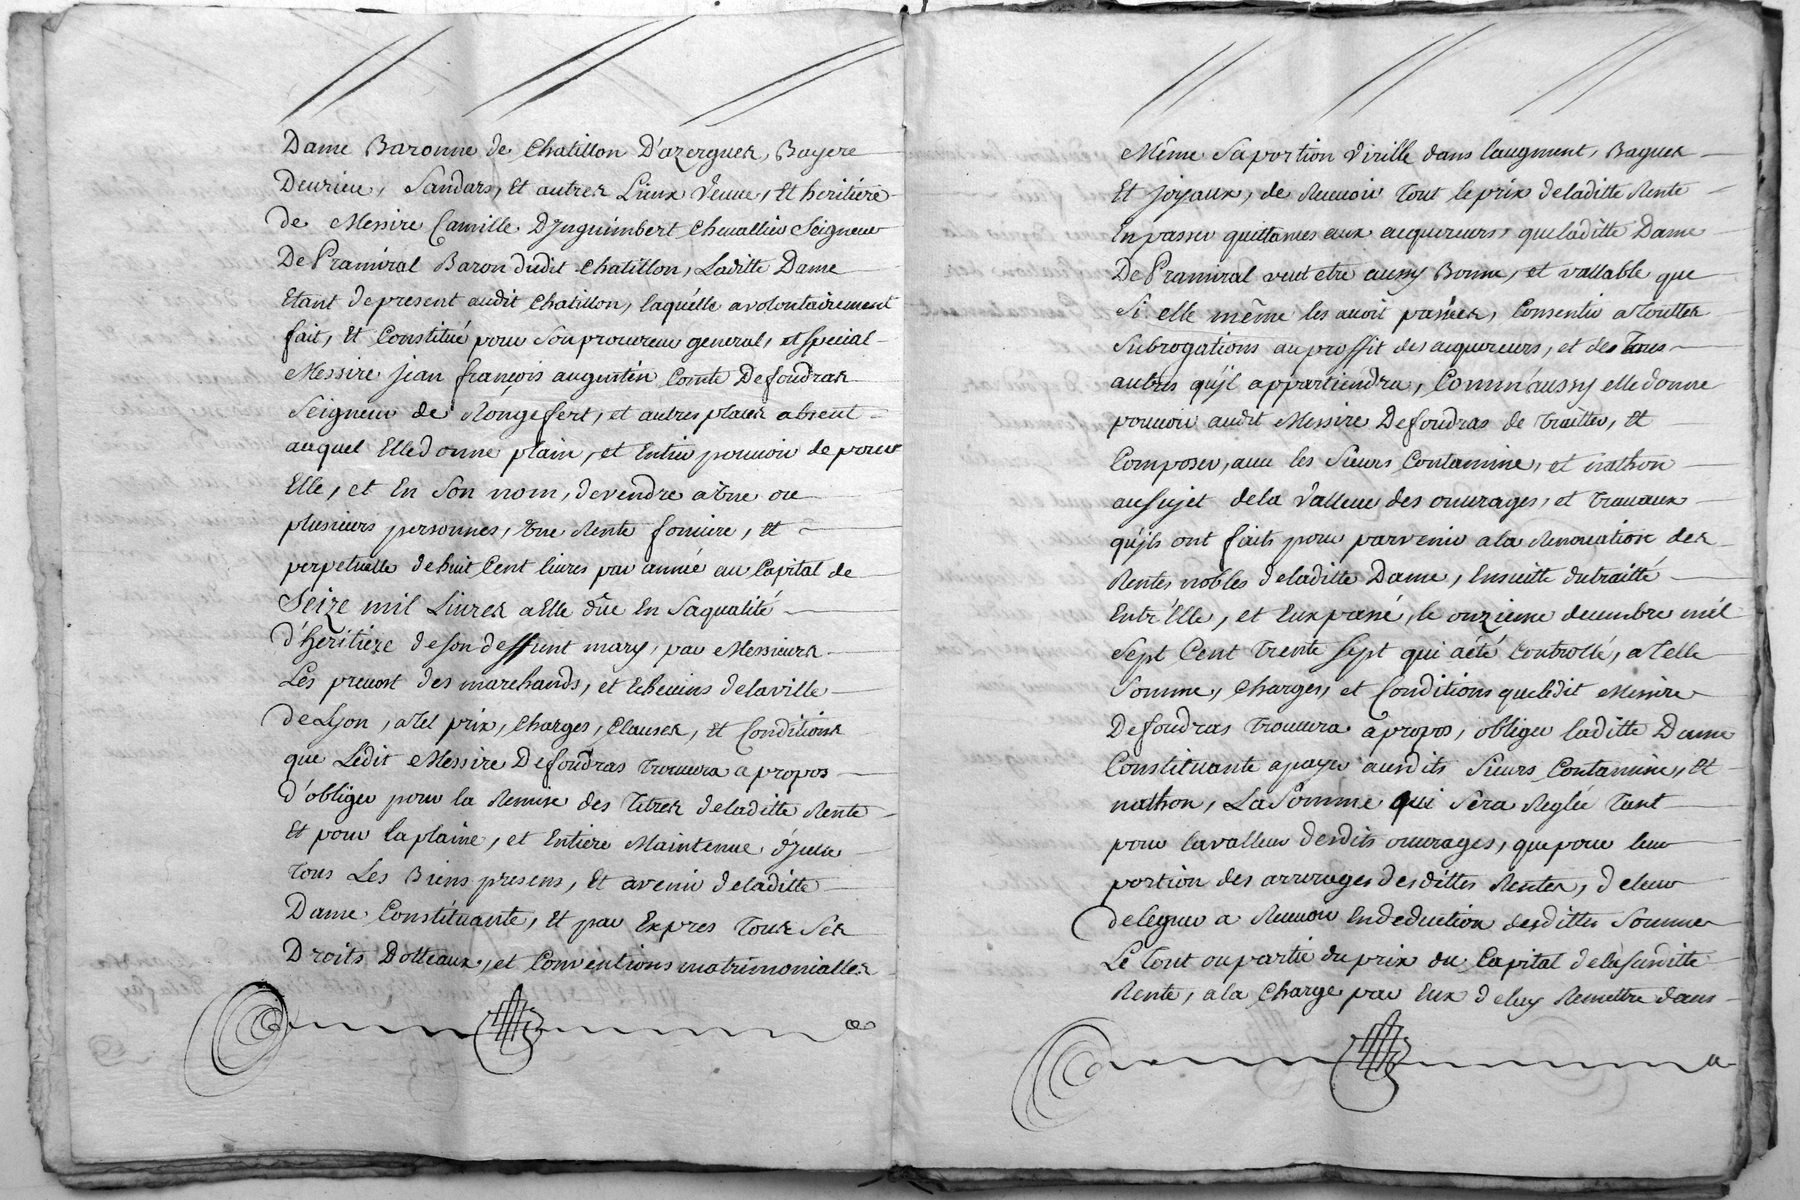 Dame Baronne de Chatillon D'azergues, Bayere
Deurieu, Sandars, et autres Lieux Veuve, et heritiere
de Messire Camille D'Inguimbert Chevallier Seigneur
De Pramiral Baron dudit Chatillon, Laditte Dame
Etant de present audit Chatillon, laquelle a volontairement
fait, et Constitué pour Son procureur general, et special
Messire jean françois augustin Comte De foudras
Seigneur de Rongefert, et autres places absent
auquel Elle donne plain, et Entier pouvoir de pour
Elle, et En Son nom, de vendre a Une ou
plusieurs personnes, Une Rente fonciere, et
perpetuelle de huit Cent livres par année au Capital de
Seize mil Livres a Elle düe En Sa qualité
d'heritiere de son deffunt mary, par Messieurs
Les prevost des marchands, et Echevins de la ville
de Lyon, a Tel prix, Charges, Clauses, et Conditions
que Ledit Messire De foudras Trouvera a propos
d'obliger pour la Remise des Titres de laditte Rente
Et pour la plaine, et Entiere Maintenue d'Icelle
Tous Les Biens presens, Et avenir de laditte
Dame Constituante, Et par Expres Tous Ses
Droits Dotteaux, et Conventions matrimonialles
Même Sa portion Virille dans l'augment, Bagues
Et Joyaux, de Recevoir Tout le prix de laditte Rente
En passer quittances aux acquereurs, que laditte Dame
De Pramiral veut etre aussy Bonne, et vallable que
Si elle même les avoit passées, Consentir a Touttes
Subrogations au proffit des acquereurs, et de Tous
autres qu'il appartiendra, Comm'aussy elle donne
pouvoir audit Messire De foudras de Traitter, et
Composer, avec les Sieurs Contamine, et nathon
au Sujet de la Valleur des ouvrages, et Travaux
qu'ils ont faits pour parvenir a la Renovation des
Rentes nobles de laditte Dame, Ensuitte du traitté
Entr'Elle, et Eux passé, le onzieme decembre mil
Sept Cent Trente Sept qui a été Controllé, a Telle
Somme, Charges, et Conditions que ledit Messire
De foudras Trouvera apropos, obliger laditte Dame
Constituante a payer ausdits Sieurs Contamine, Et
nathon, La Somme qui Sera Reglée Tant
pour la valleur desdits ouvrages, que pour leur
portion des arrerages desdittes Rentes, de leur
deleguer a Recevoir En deduction desdittes Sommes
Le Tout ou partie du prix du Capital de la susditte
Rente, a la Charge par Eux de luy Remettre dans